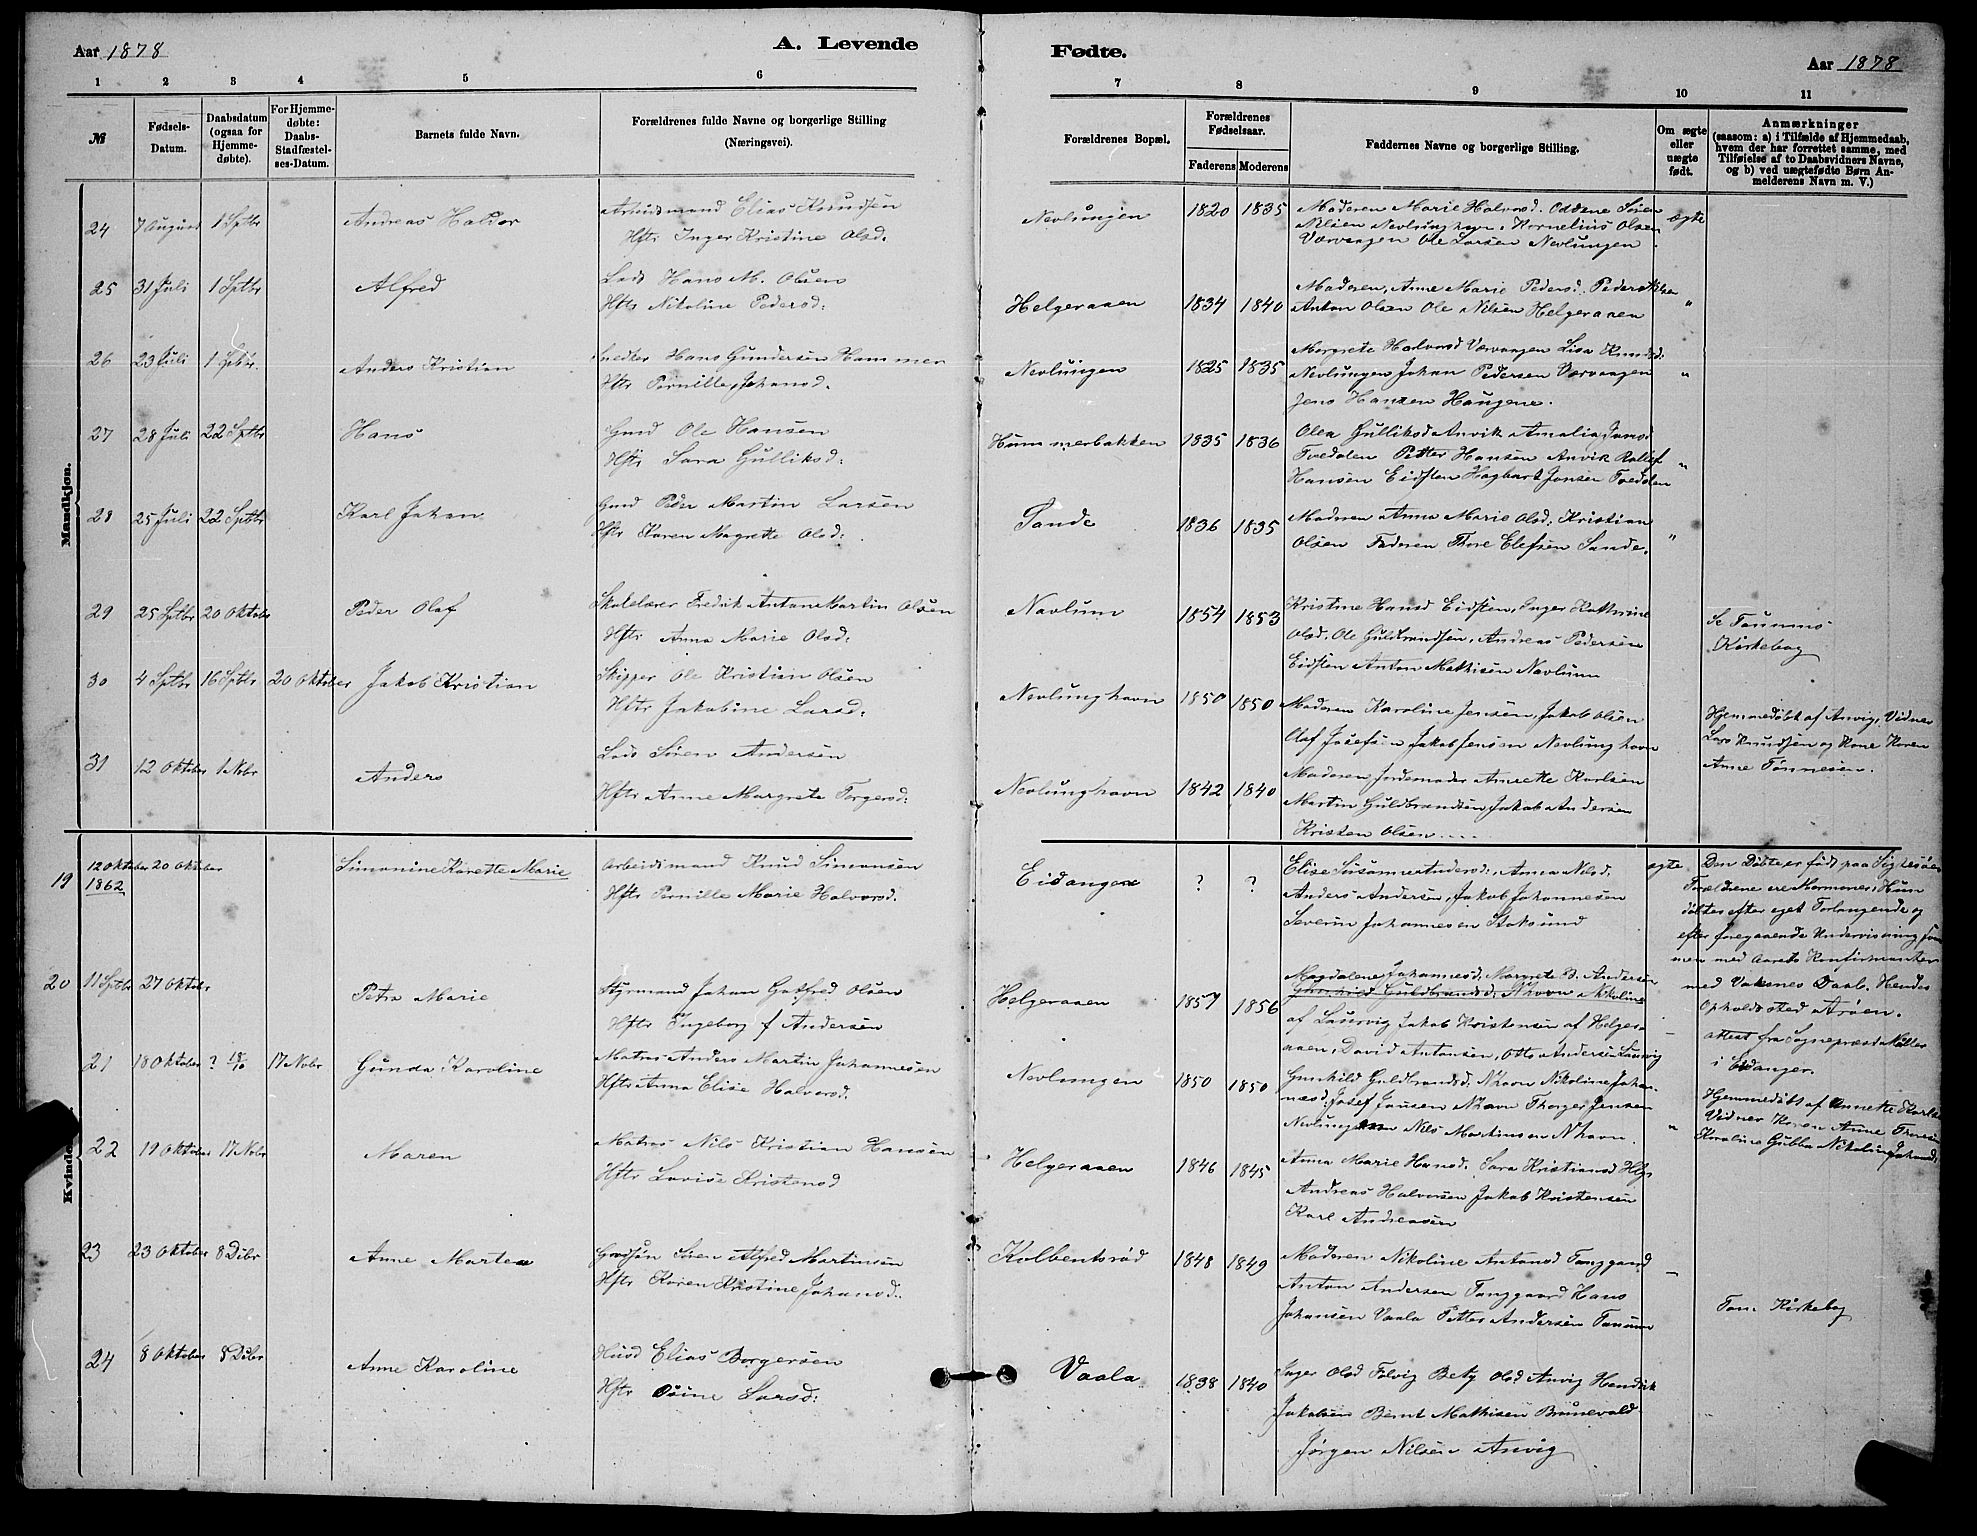 Aar 1878
A. Levende
1 2 3 4 5 6
№
Fødsels-
Datum.
Daabsdatum
(ogsaa for
Hjemme-
døbte).
For Hjemme-
døbte:
Daabs-
Stadfæstel-
ses-Datum.
Barnets fulde Navn.
Forældrenes fulde Navne og borgerlige Stilling
(Næringsvei).
Mandkjøn.
24 7 August 1 Sptbr Andreas Haldor Arbeidsmand Elias Knudsen
Hstr Inger Kristine Olsd.
25 31 Juli 1 Sptbr Alfred Lods Hans M. Olsen
Hstr Nikoline Pedersd:
26 23 Juli 1 Sptbr. Anders Kristian Snedker Hans Gundersen Hammer
Hstr Pernille Johansd.
27 28 Juli 22 Sptbr Hans Gmd Ole Hansen
Hstr Sara Gulliksd:
28 25 Juli 22 Sptbr Karl Johan Gmd Peder Martin Larsen
Hstr Karen Magrette Olsd:
29 25 Sptbr 20 Oktober Peder Olaf Skolelærer Fredrik Anton Martin Olsen
Hstr Anna Marie Olsd:
30 4 Sptbr 16 Sptbr 20 Oktober Jakob Kristian Skipper Ole Kristian Olsen
Hstr Jakobine Larsd:
31 12 Oktober 1 Nobr Anders Lods Søren Andersen
Hstr Anne Margrete Torgersd:
Kvindekjøn.
19 12 Oktober 1862 20 Oktober Simonine Karette Marie Arbeidsmand Knud Simonsen
Hstr Pernille Marie Halvorsd.
20 11 Sptbr 27 Oktobr Petra Marie Styrmand Johan Gotfred Olsen
Hstr Ingeborg f Andersen
21 18 Oktober ? 18/10 17 Nobr Gunda Karoline Matros Anders Martin Johannesen
Hstr Anna Elise Halvorsd.
22 19 Oktober 17 Nobr Maren Matros Nils Kristian Hansen
Hstr Lovise Kristensd
23 23 Oktober 8 Dcbr Anne Martea Søren Alfred Martinsen
Hstr Karen Kristine Johansd.
24 8 Oktober 8 Dcbr Anne Karoline Husd Elias Borgersen
Hstr Larsd:
Fødte.
Aar 1878
7 8 9 10 11
Forældrenes Bopæl.
Forældrenes
Fødselsaar.
Faderens Moderens
Faddernes Navne og borgerlige Stilling.
Om ægte
eller
uægte
født.
Anmærkninger
(saasom: a) i Tilfælde af Hjemmedaab,
hvem der har forrettet samme, med
Tilføielse af to Daabsvidners Navne,
og b) ved uægtefødte Børn An-
melderens Navn m. V.)
Nevlungen 1820 1835 Moderen Marie Halvorsd. Oddene Søren ægte
Nilsen Nevlunghavn, Kornelius Olsen
Værvaagen Ole Larsen Nevlungen
Helgeraaen 1834 1840 Moderen, Anne Marie Pedersd.
Anton Olsen Ole Nilsen Helgeraaen "
Nevlungen 1825 1835 Margrete Halvorsd Værvaagen Lisa Knudsd:
Nevlungen Johan Pedersen Værvaagen "
Jens Hansen Haugene.
Hummerbakken 1835 1836 Olea Gulliksd Anvik Amalia Jansd
Tvedalen Petter Hansen Anvik Rollef "
Hansen Eidsten Hagbart Jansen Tvedalen
Sande 1836 1835 Moderen Anna Marie Olsd. Kristian
Olsen Faderen Thore Elefsen Sande. "
Navlum 1854 1853 Kristine Hansd Eidsten, Inger Kathrine
Olsd. Ole Guldbrandsen, Andreas Pedersen
Eidsten Anton Mathisen Navlum
Se Taunums
Kirkebog
Nevlunghavn 1850 1850 Moderen Karoline Jensen, Jakob Olsen
Olaf Josefsen Jakob Jensen Nevlunghavn
Hjemmedøbt af Anvig, Vidner
Lars Knudsen og Kone Karen
Anne Tønnesen.
Nevlunghavn 1842 1840 Moderen Jordemoder Annette Karlsen
Martin Guldbrandsen, Jakob Andersen
Kristen Olsen
Eidanger ? ? Elise Susanne Andersd:, Anna Nilsd. ægte
Anders Andersen, Jakob Johannesen
Severin Johannesen Stoksund
Den Døbte er født paa
Forældrene ere Mormoner. Hun
døbtes efter eget Forlangende og
efter foregaaende Undervisning sam
men med Aarets Konfirmanter
med Voksnes Daab. Hendes
Opholdssted Arøen.
Attest fra Sognepræst Møller
i Eidanger.
Helgeraaen 1857 1856 Magdalene Johannesd. Margrete B. Andersen
Gunhild Guldbrandsd: Nhavn Nikoline
af Laurvig Jakob Kristensen af Helger-
aaen, David Antonsen, Otto Andersen Laurvig
Nevlungen 1850 1850 Gunhild Guldbrandsd. Nhavn Nikoline Johan-
nesd, Josef Jansen Nhavn Thorger Jensen
Nevlungen Nils Martinsen Nhavn. "
Hjemmedøbt af Annette Karls
Vidner Karen Anne
Karoline Gubba Nikoline Johansd:
Helgeraaen 1846 1845 Anna Marie Hansd. Sara Kristiansd Hlgr
Andreas Halvorsen Jakob Kristensen
Karl Andreasen
Kolbentsrød 1848 1849 Moderen Nikoline Antonsd
Anton Andersen Hans
Johansen Vaala Petter Andersen Tanum
Tan. Kirkebog
Vaala 1838 1840 Inger Olsd Følvig Bety Olsd Anvig Hendrik
Jakobsen Bernt Mathisen Brunevald
Jørgen Nilsen Anvig